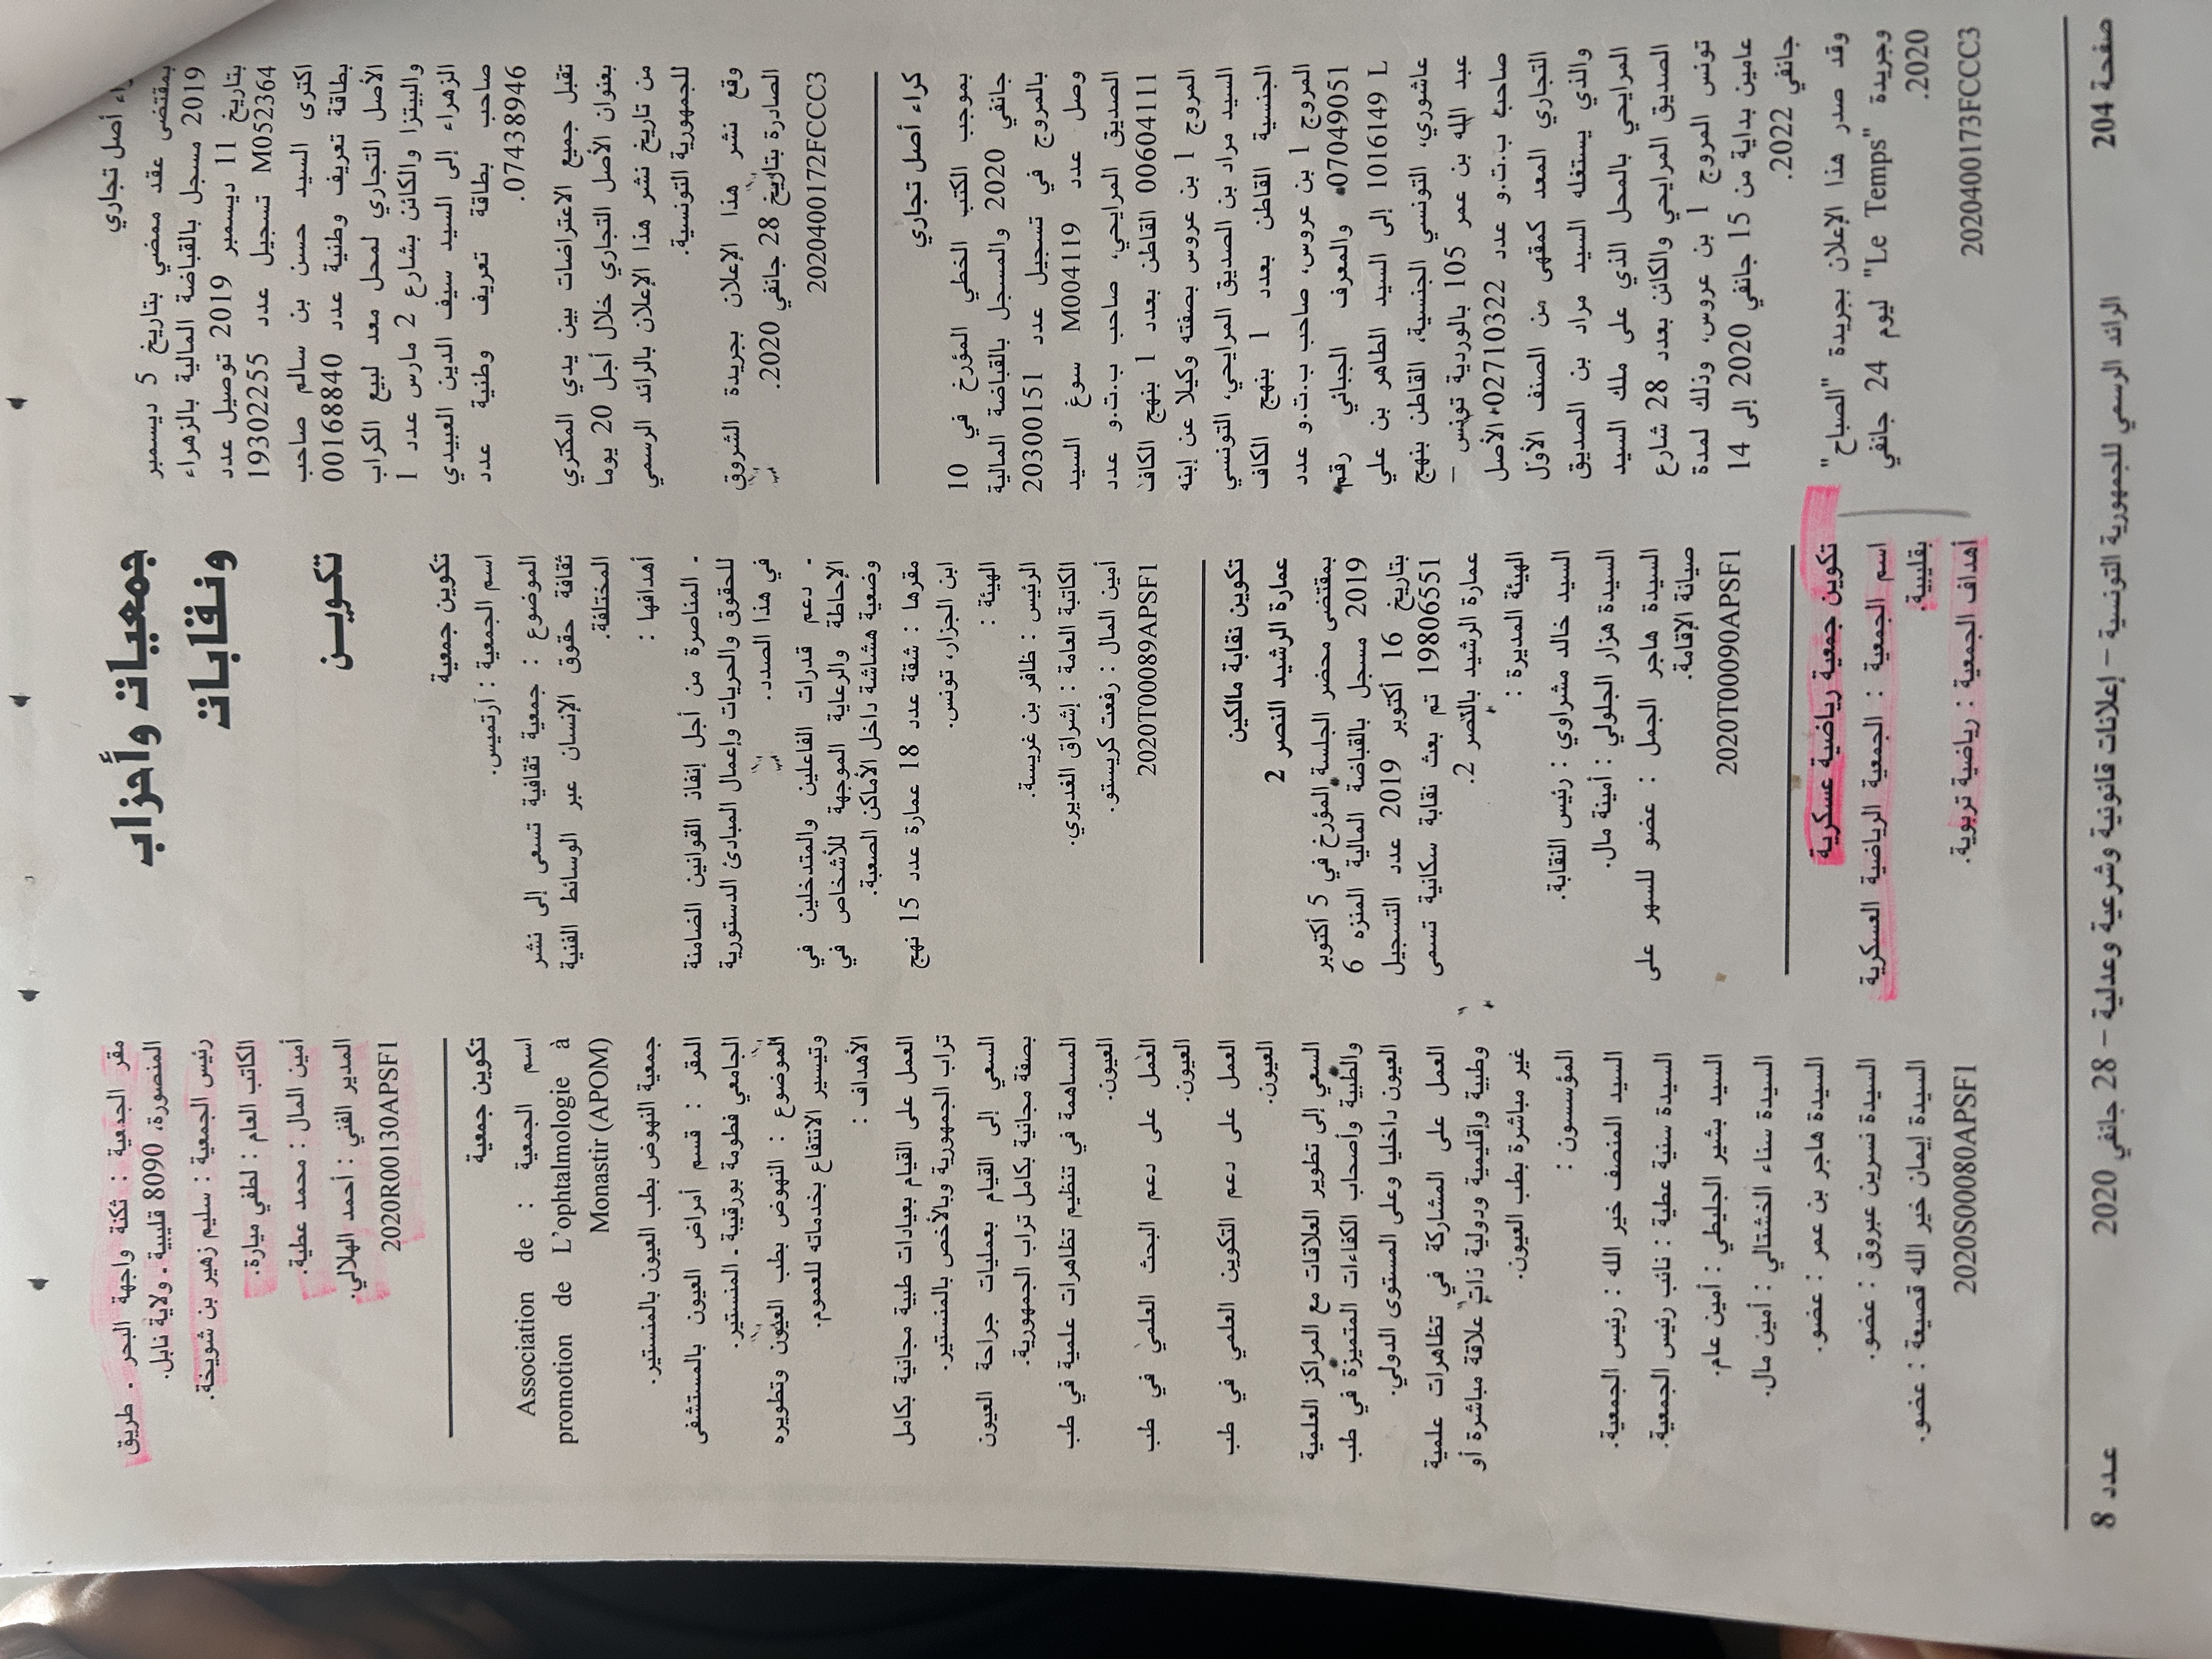 راء أصل تجاري
بمقتضى عقد ممضي بتاريخ 5 ديسمبر
2019 مسجل بالقباضة المالية بالزهراء
بتاريخ 11 ديسمبر 2019 توصيل عدد
M052364 تسجيل عدد 19302255
اكترى السيد حسن بن سالم صاحب
بطاقة تعريف وطنية عدد 00168840
الأصل التجاري لمحل معد لبيع الكراب
والبيتزا والكائن بشارع 2 مارس عدد 1
الزهراء إلى السيد سيف الدين العبيدي
صاحب بطاقة تعريف وطنية عدد
07438946.
تقبل جميع الاعتراضات بين يدي المكتري
بعنوان الأصل التجاري خلال أجل 20 يوما
من تاريخ نشر هذا الإعلان بالرائد الرسمي
للجمهورية التونسية.
وقع نشر هذا الإعلان بجريدة الشروق
الصادرة بتاريخ 28 جانفي 2020.
2020400172FCCC3
كراء أصل تجاري
بموجب الكتب الخطي المؤرخ في 10
جانفي 2020 والمسجل بالقباضة المالية
بالمروج في تسجيل عدد 20300151
وصل عدد M004119 سوغ السيد
الصديق المرايحي، صاحب ب.ت.و عدد
00604111 القاطن بعدد 1 بنهج الكاف
المروج 1 بن عروس بصفته وكيلا عن إبنه
السيد مراد بن الصديق المرايحي، التونسي
الجنسية القاطن بعدد 1 بنهج الكاف
المروج 1 بن عروس، صاحب ب.ت.و عدد
07049051 والمعرف الجبائي رقم
1016149 L إلى السيد الطاهر بن علي
عاشوري، التونسي الجنسية، القاطن بنهج
عبد الله بن عمر 105 بالوردية تونس –
صاحب ب.ت.و عدد 02710322 الأصل
التجاري المعد كمقهى من الصنف الأول
والذي يستغله السيد مراد بن الصديق
المرايحي بالمحل الذي على ملك السيد
الصديق المرايحي والكائن بعدد 28 شارع
تونس المروج 1 بن عروس، وذلك لمدة
عامين بداية من 15 جانفي 2020 إلى 14
جانفي 2022.
وقد صدر هذا الإعلان بجريدة "الصباح"
وجريدة "Le Temps" ليوم 24 جانفي
2020.
2020400173FCCC3
جمعيات وأحزاب
ونقابات
تكويـــن
تكوين جمعية
اسم الجمعية : أرتميس.
الموضوع : جمعية ثقافية تسعى إلى نشر
ثقافة حقوق الإنسان عبر الوسائط الفنية
المختلفة.
أهدافها :
- المناصرة من أجل إنفاذ القوانين الضامنة
للحقوق والحريات وإعمال المبادئ الدستورية
في هذا الصدد.
- دعم قدرات الفاعلين والمتدخلين في
الإحاطة والرعاية الموجهة للأشخاص في
وضعية هشاشة داخل الأماكن الصعبة.
مقرها : شقة عدد 18 عمارة عدد 15 نهج
ابن الجزار، تونس.
الهيئة :
الرئيس : ظافر بن غريسة.
الكاتبة العامة : إشراق الغديري.
أمين المال : رفعت كريستو.
2020T00089APSF1
تكوين نقابة مالكين
عمارة الرشيد النصر 2
بمقتضى محضر الجلسة المؤرخ في 5 أكتوبر
2019 مسجل بالقباضة المالية المنزه 6
بتاريخ 16 أكتوبر 2019 عدد التسجيل
19806551 تم بعث نقابة سكانية تسمى
عمارة الرشيد بالنصر 2.
الهيئة المديرة :
السيد خالد مشراوي : رئيس النقابة.
السيدة هزار الجلولي : أمينة مال.
السيدة هاجر الجمل : عضو للسهر على
صيانة الإقامة.
2020T00090APSF1
تكوين جمعية رياضية عسكرية
اسم الجمعية : الجمعية الرياضية العسكرية
بقليبية.
أهداف الجمعية : رياضية تربوية.
مقر الجمعية : ثكنة واجهة البحر - طريق
المنصورة، 8090 قليبية - ولاية نابل.
رئيس الجمعية : سليم زهير بن شويخة.
الكاتب العام : لطفي ميارة.
أمين المال : محمد عطية.
المدير الفني : أحمد الهلالي.
2020R00130APSF1
تكوين جمعية
اسم الجمعية : Association de
promotion de L'ophtalmologie à
Monastir (APOM)
جمعية النهوض بطب العيون بالمنستير.
المقر : قسم أمراض العيون بالمستشفى
الجامعي فطومة بورقيبة - المنستير.
الموضوع : النهوض بطب العيون وتطويره
وتيسير الانتفاع بخدماته للعموم.
الأهداف :
العمل على القيام بعيادات طبية مجانية بكامل
تراب الجمهورية وبالأخص بالمنستير.
السعي إلى القيام بعمليات جراحة العيون
بصفة مجانية بكامل تراب الجمهورية.
المساهمة في تنظيم تظاهرات علمية في طب
العيون.
العمل على دعم البحث العلمي في طب
العيون.
العمل على دعم التكوين العلمي في طب
العيون.
السعي إلى تطوير العلاقات مع المراكز العلمية
والطبية وأصحاب الكفاءات المتميزة في طب
العيون داخليا وعلى المستوى الدولي.
العمل على المشاركة في تظاهرات علمية
وطبية وإقليمية ودولية ذات علاقة مباشرة أو
غير مباشرة بطب العيون.
المؤسسون :
السيد المنصف خير الله : رئيس الجمعية.
السيدة سنية عطية : نائب رئيس الجمعية.
السيد بشير الجليطي : أمين عام.
السيدة سناء الخشتالي : أمين مال.
السيدة هاجر بن عمر : عضو.
السيدة نسرين عبروق : عضو.
السيدة إيمان خير الله قصيعة : عضو.
2020S00080APSF1
صفحة 204 الرائد الرسمي للجمهورية التونسية – إعلانات قانونية وشرعية وعدلية – 28 جانفي 2020 عـدد 8